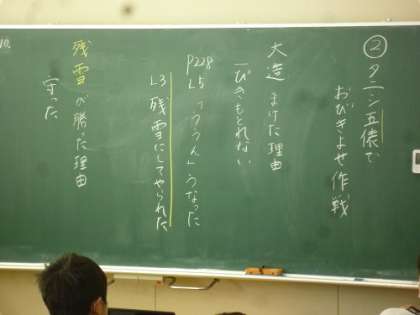 ② タニシ五俵で
おびきよせ作戦
大造 まけた理由
一ぴきもとれない
P228
L5 「ううん」うなった
L3 残雪にしてやられた
残雪が勝った理由
守った